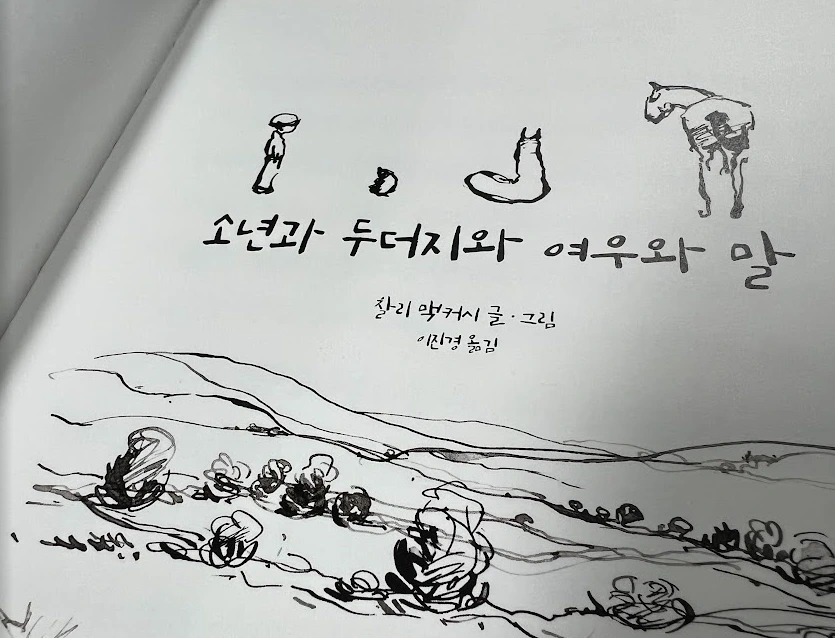 소년과 두더지와 여우와 말
찰리 맥커시 글·그림
이진경 옮김